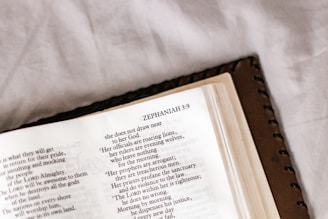 ZEPHANIAH 3:9
is what they will get
in return for their pride,
insulting and mocking
of the LORD Almighty.
The LORD will be awesome to them
when he destroys all the gods
of the land.
The nations on every shore
will worship him,
in its own land.
she does not draw near
to her God.
Her officials are roaring lions,
her rulers are evening wolves,
who leave nothing
for the morning.
Her prophets are arrogant;
they are treacherous men.
Her priests profane the sanctuary
and do violence to the law.
The LORD within her is righteous;
he does no wrong.
Morning by morning
he dispenses his justice,
every new day